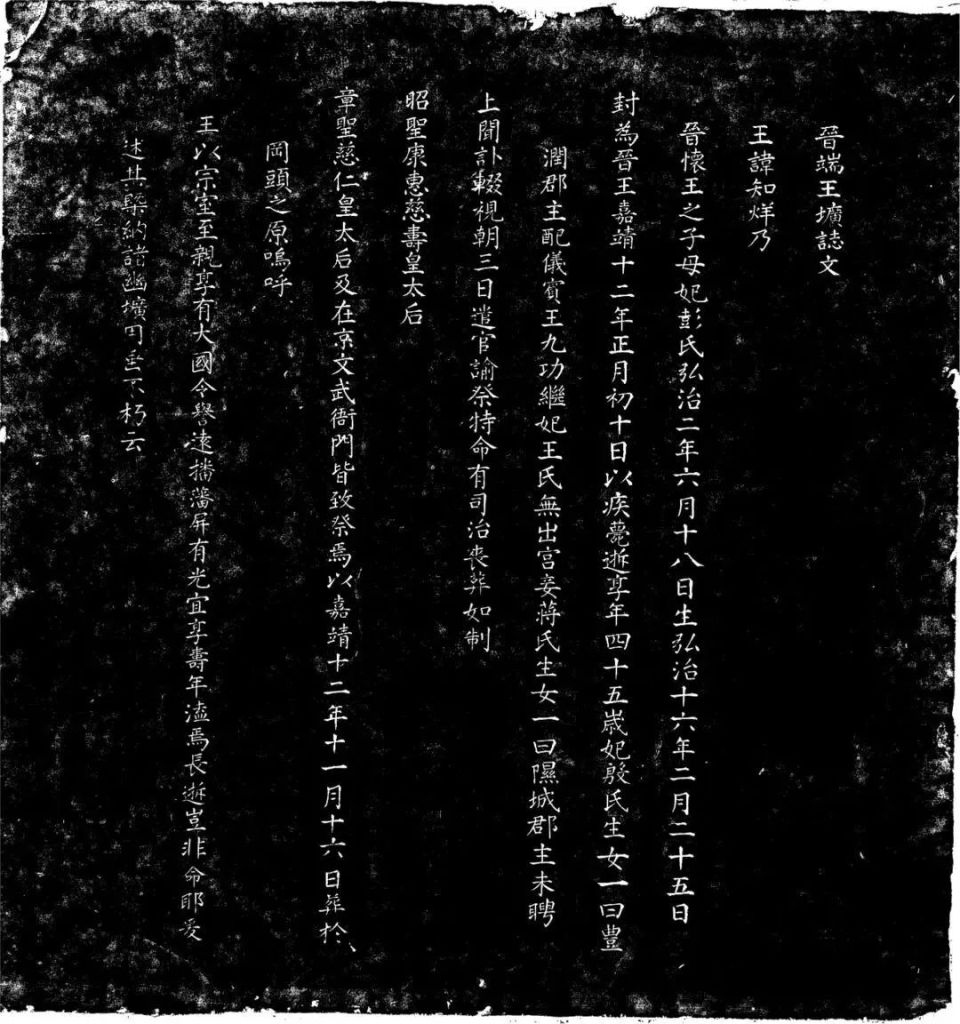 晉端王壙誌文
王諱知烊乃
晉懷王之子母妃彭氏弘治二年六月十八日生弘治十六年二月二十五日
封為晉王嘉靖十二年正月初十日以疾薨逝享年四十五歲妃殷氏生女一曰豊
潤郡主配儀賓王九功繼妃王氏無出宮妾蔣氏生女一曰隰城郡主未聘
上聞訃輟視朝三日遣官諭祭特命有司治喪葬如制
昭聖康惠慈壽皇太后
章聖慈仁皇太后及在京文武衙門皆致祭焉以嘉靖十二年十一月十六日葬於
岡頭之原嗚呼
王以宗室至親享有大國令譽遠播藩屏有光宜享壽年溘焉長逝豈非命耶爰
述其槩納諸幽壙用垂不朽云